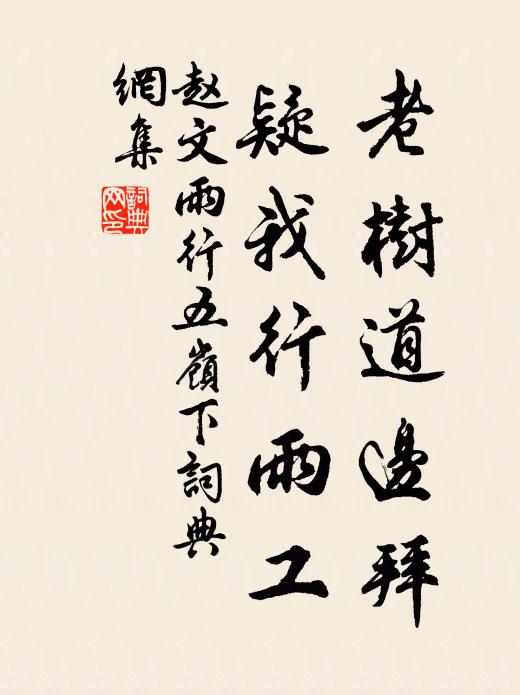 老樹道邊拜
疑我行雨工
赵文雨行五嶺下詞典
網集
詞典
网印